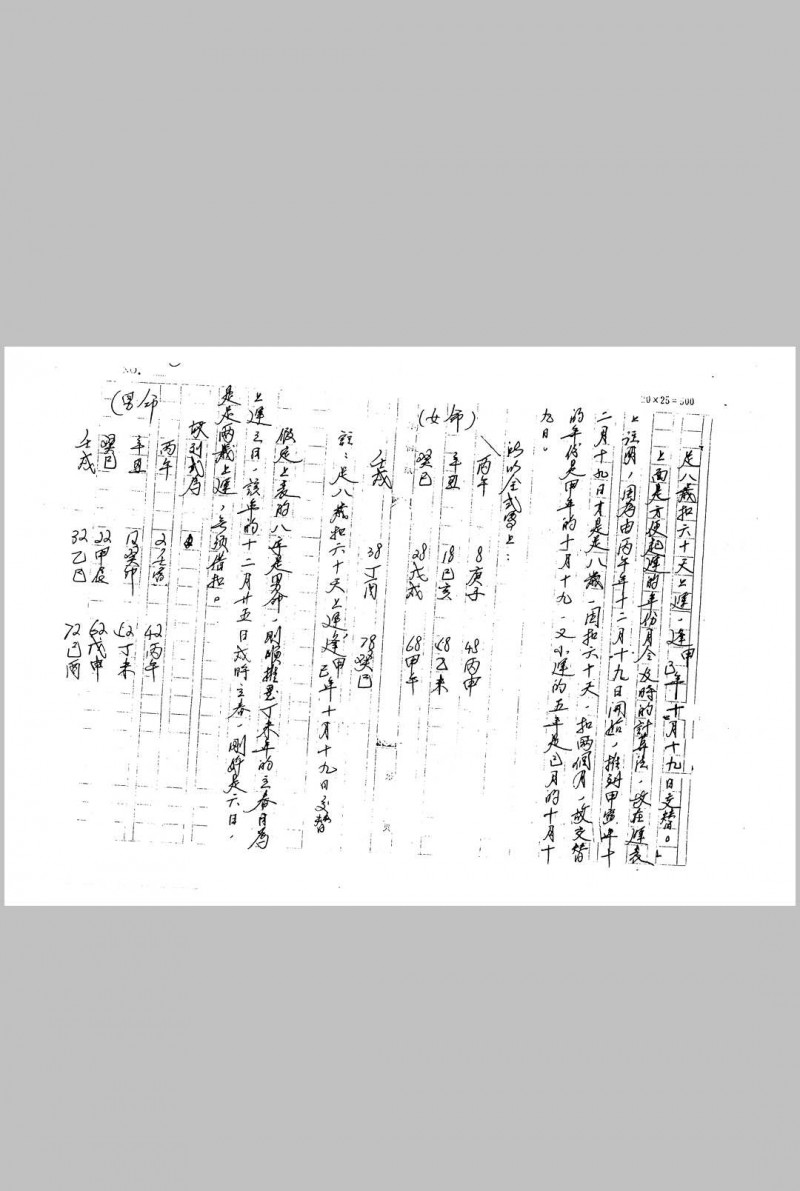 20×25=500
足八歲扣六十天上運，逢甲己年十月十九日交替。」
上面是方便起運的年份月令及時的計算法，改在運表
上註明，因為由丙午年十二月十九日開始，推到甲寅年十
二月十九日才是足八歲，因扣六十天，扣兩個月，故交替
的年份是甲年的十月十九，又小運的五年是己月的十月十
九日。
所以全式寫上：
(女命)
丙午 8庚子 48丙申
辛丑 18己亥 58乙未
癸巳 28戊戌 68甲午
壬戌 38丁酉 78癸巳
註：足八歲扣六十天上運，逢甲己年十月十九日交替
假定上表的八字是男命，則順推至丁未年的立春日為
上運之日，該年的十二月廿五日戌時立春，剛好是六日，
是足兩歲上運，無須借扣。
故列式為
(男命)
丙午 2壬寅 42丙午
辛丑 12癸卯 52丁未
癸巳 22甲辰 62戊申
壬戌 32乙巳 72己酉
NO.